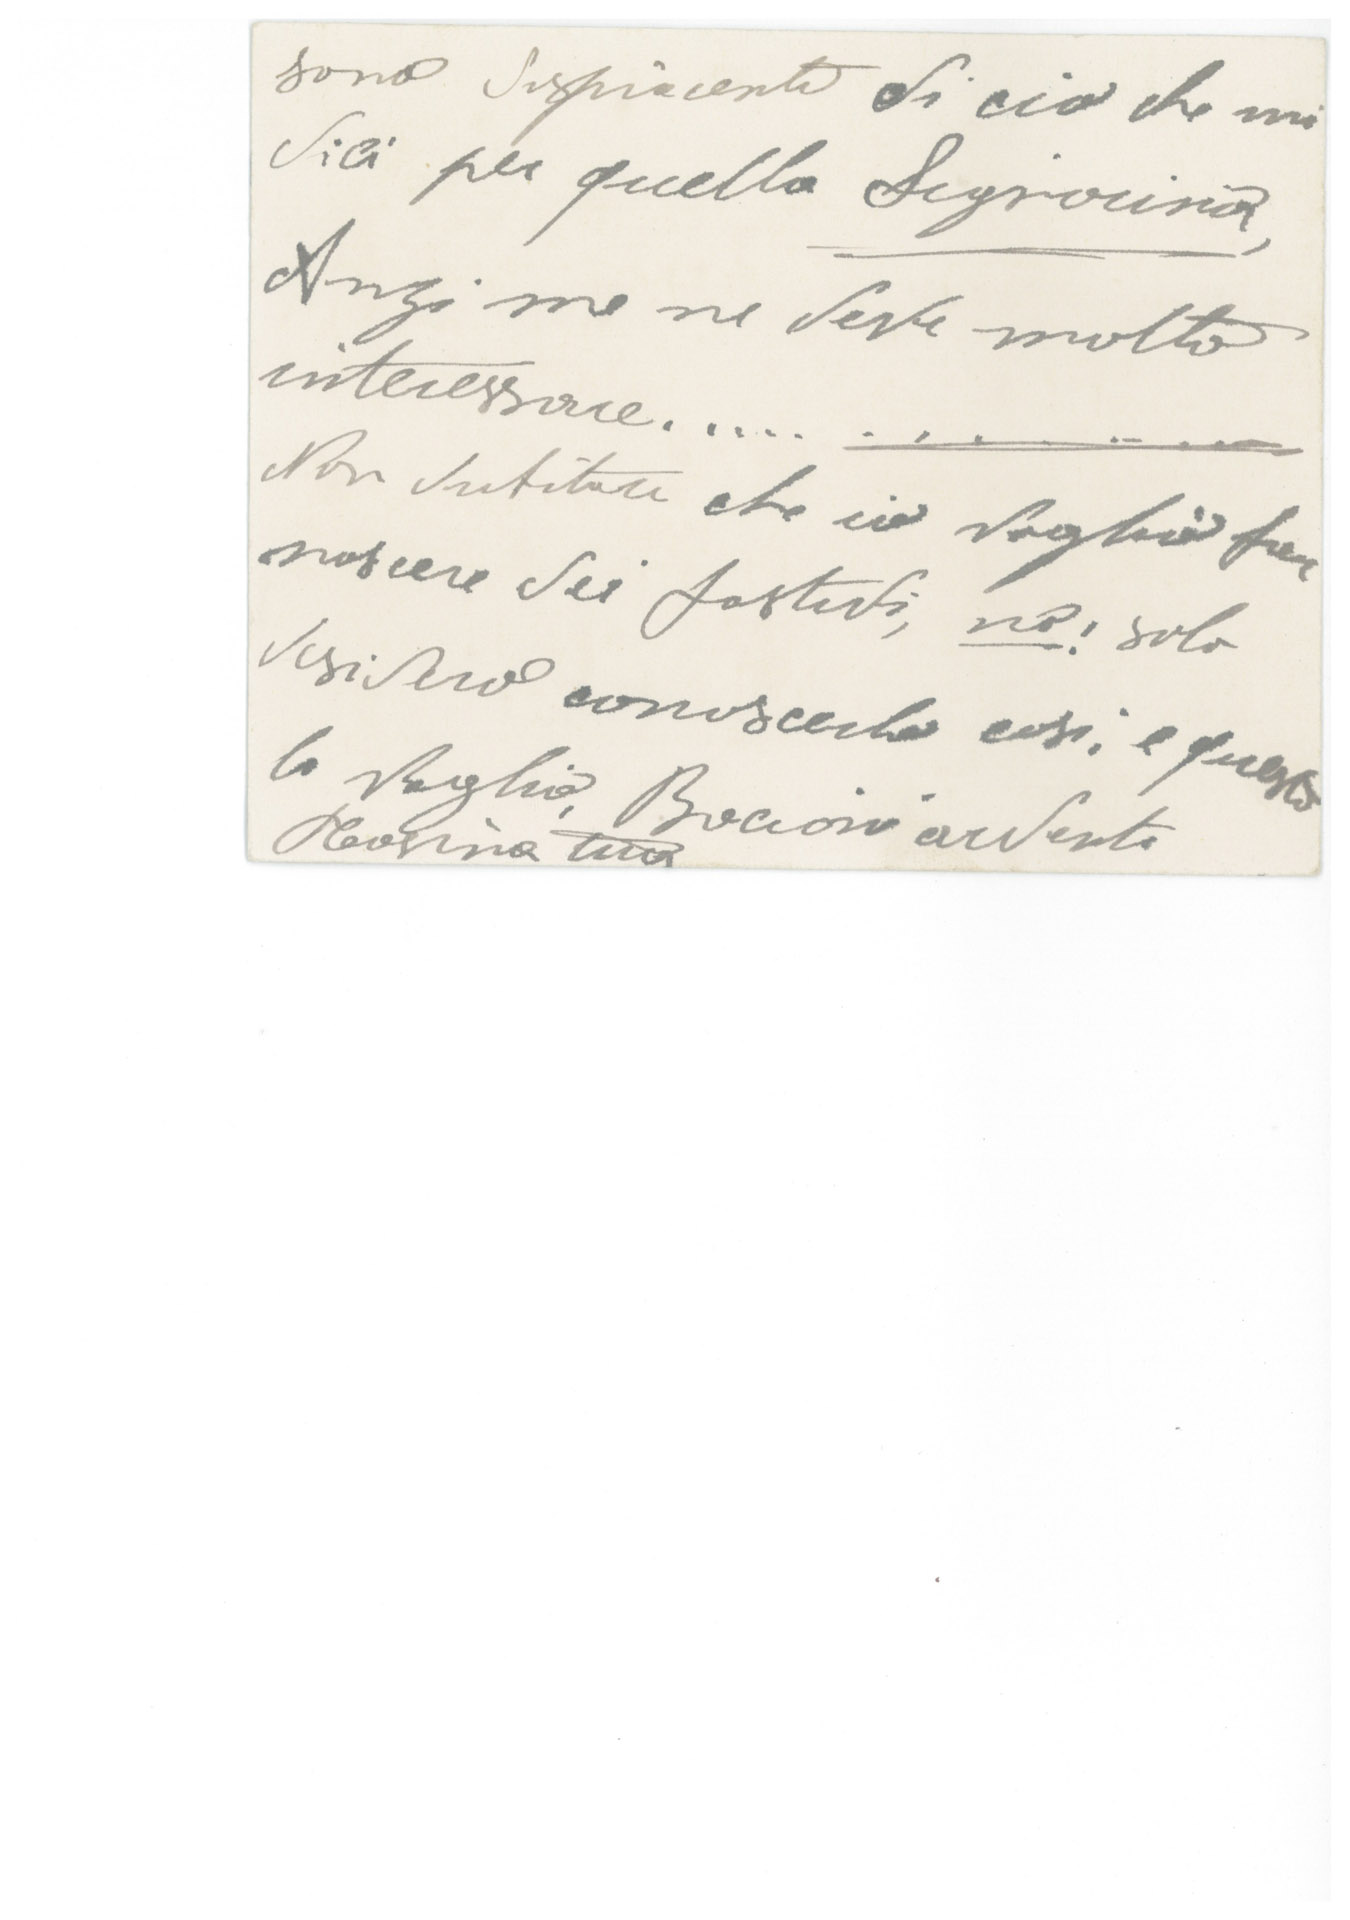 sono dispiacente di ciò che mi
dici per quella Signorina,
Anzi me ne deve molto
interessare. ..... . . . . .. . ..
Non dubitare che io voglio far
nascere dei fastidi, no! solo
desidero conoscerla così, e questo
lo voglio, Bacioni ardenti
Rosina tua